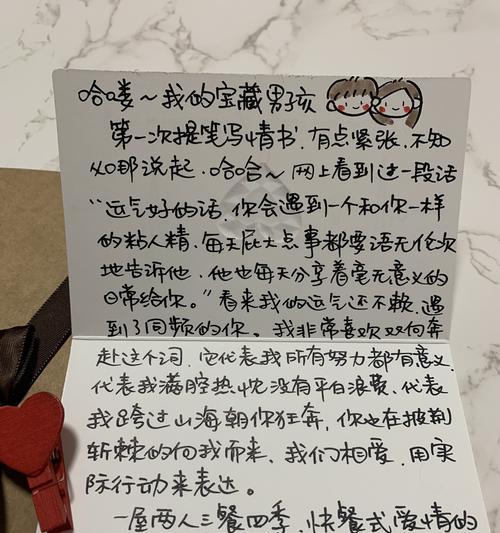 哈喽～我的宝藏男孩
第一次提笔写情书,有点紧张,不知
从哪说起,哈哈～网上看到过一段话
“运气好的话,你会遇到一个和你一样
的粘人精,每天屁大点事都要语无伦次
地告诉他,他也每天分享着毫无意义的
日常给你。”看来我的运气还不赖,遇
到了同频的你。我非常喜欢双向奔
赴这个词,它代表我所有努力都有意义,
代表我满腔热忱没有平白浪费、代表
我跨过山海朝你狂奔,你也在披荆
斩棘的向我而来、我们相爱,用实
际行动来表达。
一屋两人三餐四季,快餐式爱情的